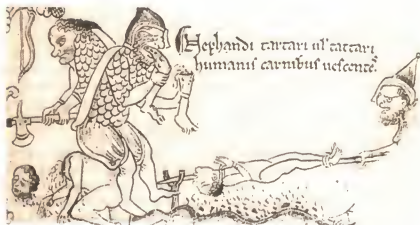 Nephandi tartari ul' tattari
humanis carnibus uescentes